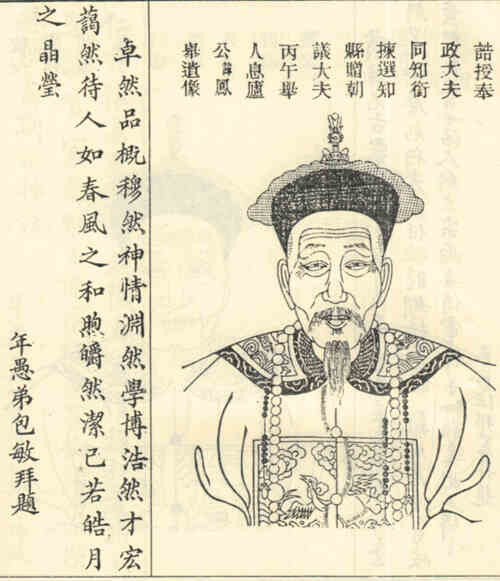 誥授奉
政大夫
同知銜
揀選知
縣贈朝
議大夫
丙午舉
人息廬
公諱鳳
舉遺像
卓然品概穆然神情淵然學博浩然才宏
藹然待人如春風之和煦皭然潔己若皓月
之晶瑩
年愚弟包敏拜題